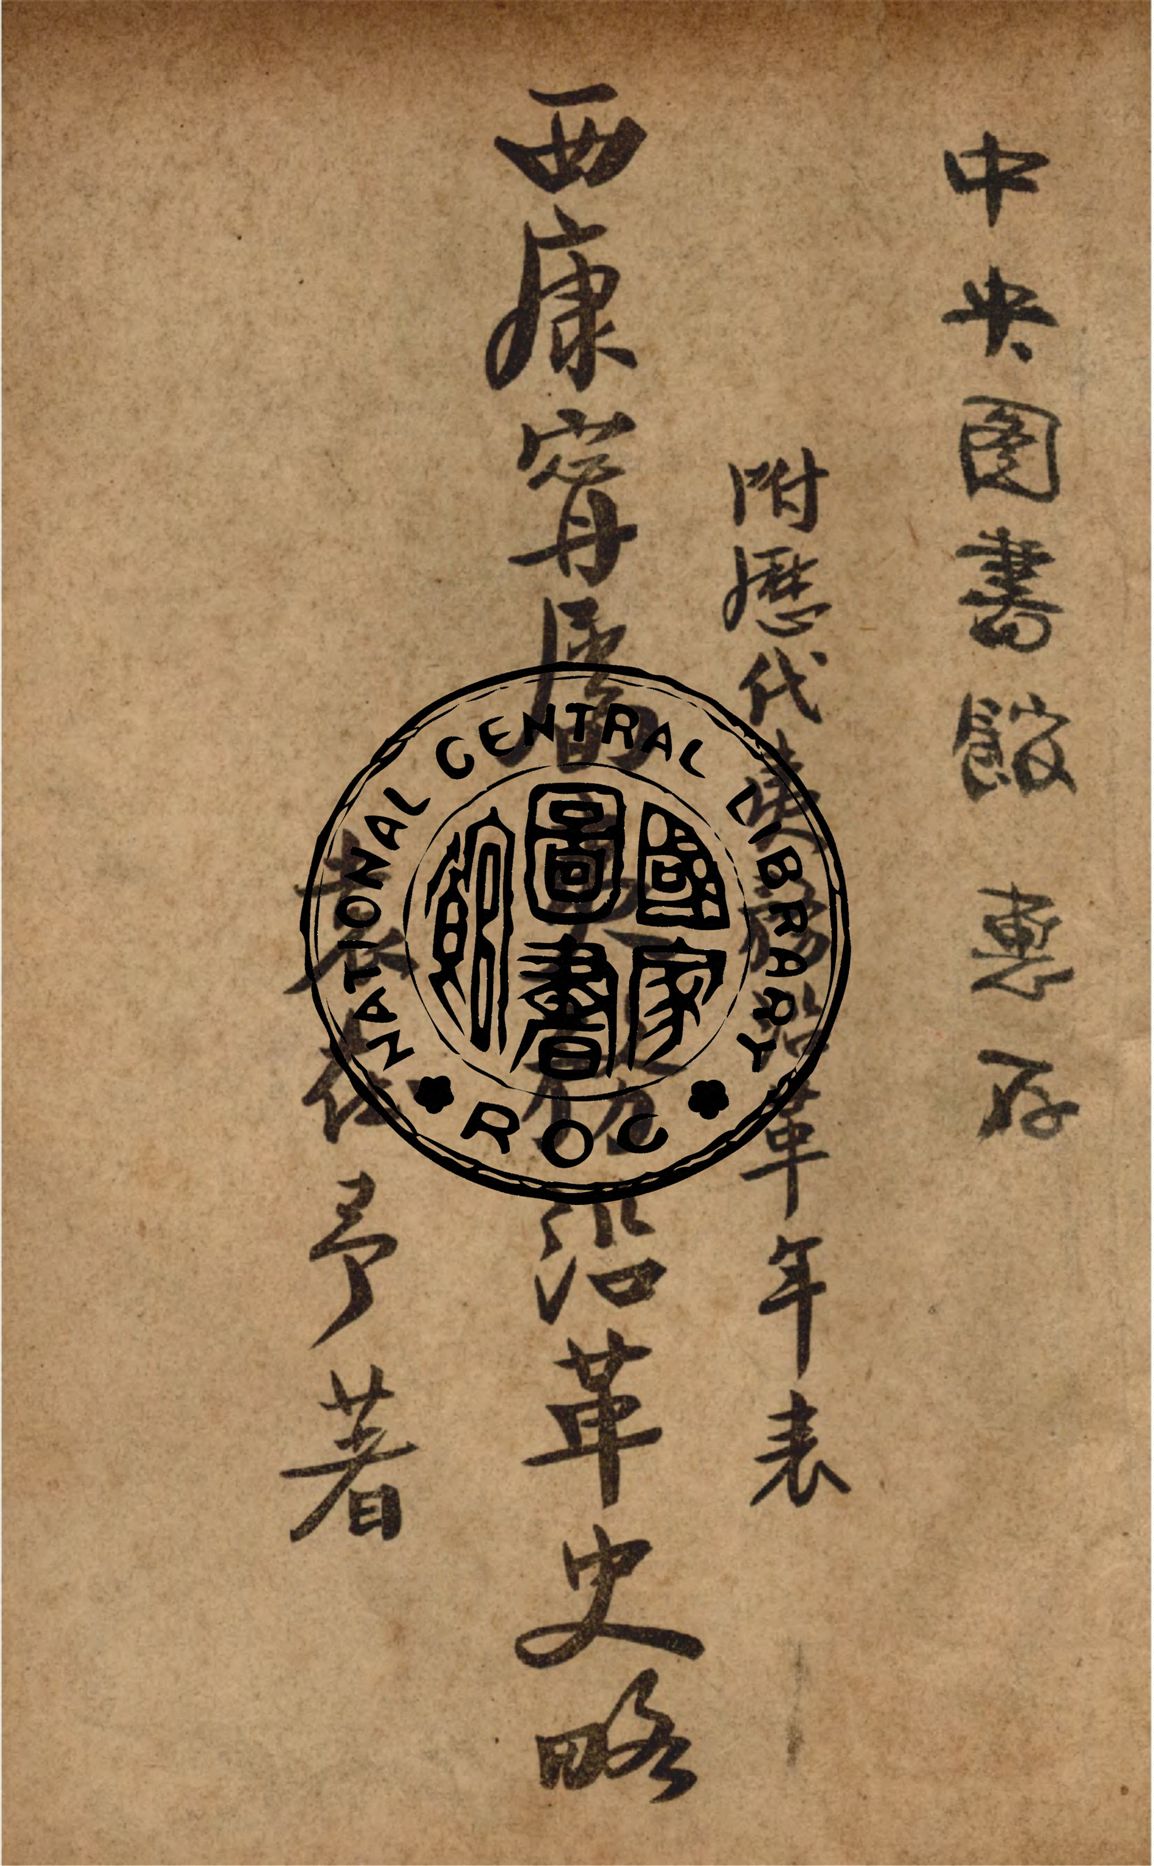 中央图書館 惠存
附歷代 沿革年表
西康寗屬 沿革史略
著
NATIONAL CENTRAL LIBRARY
國家
圖書
館
ROC